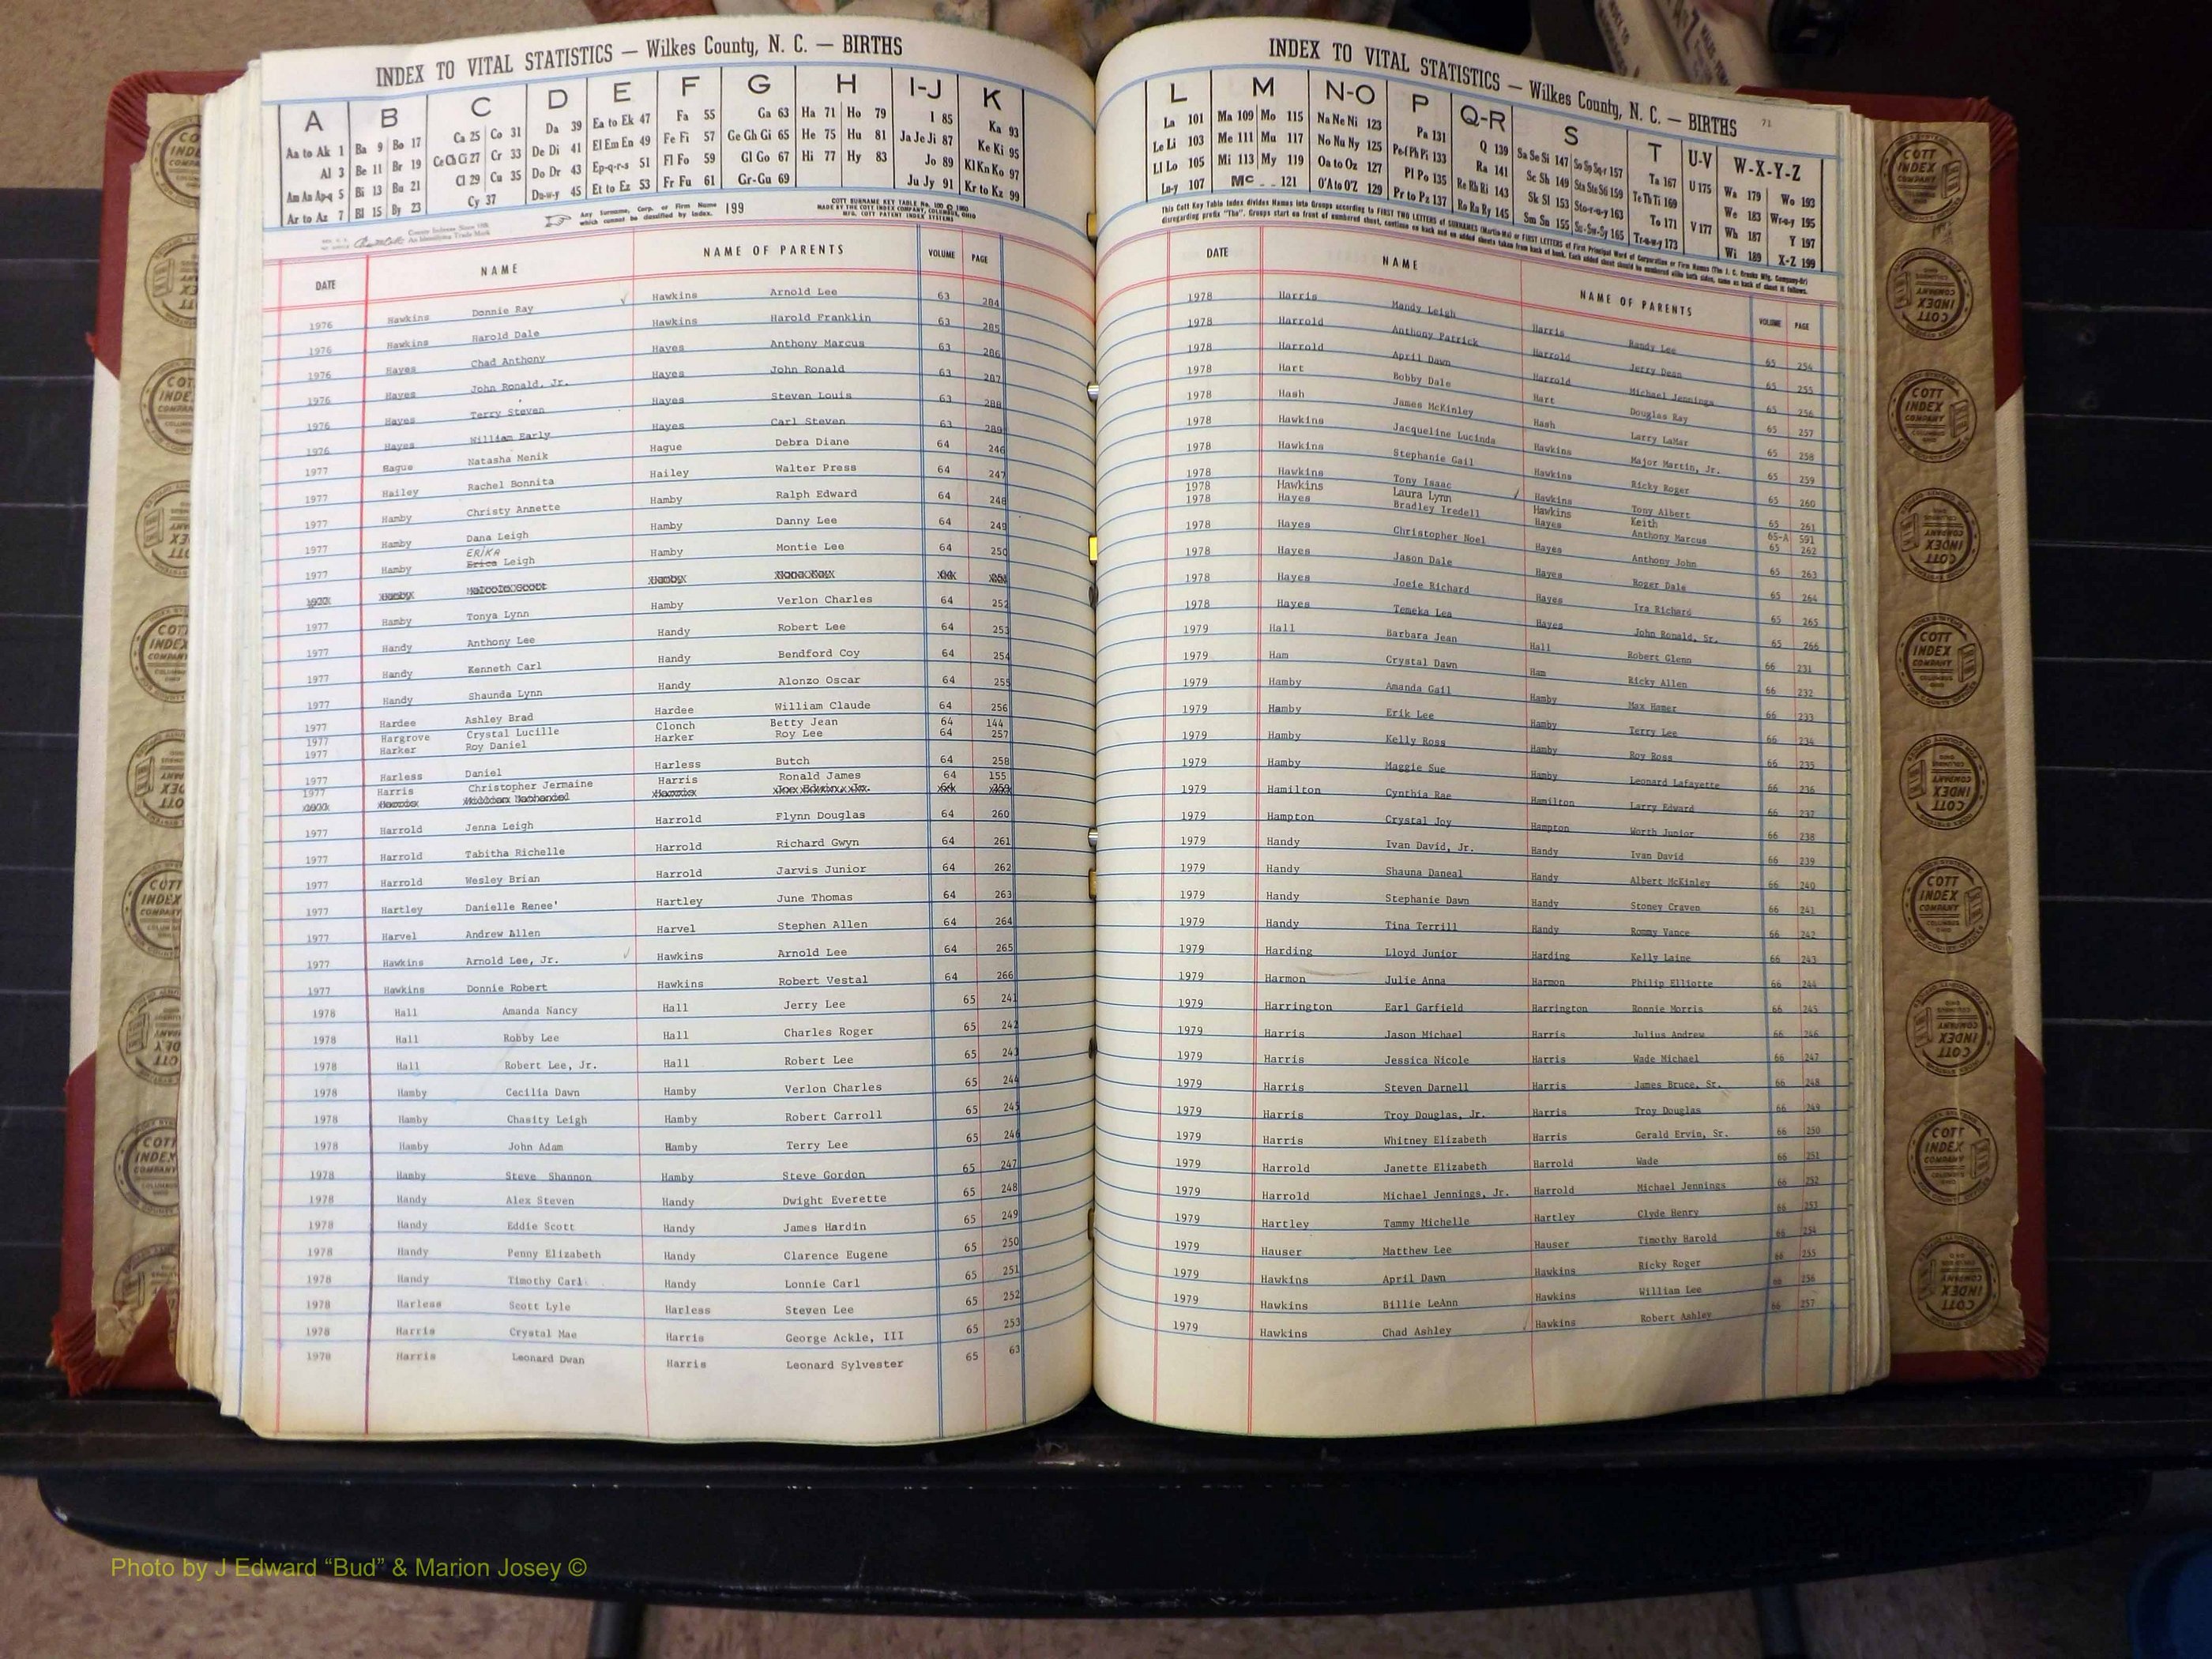 INDEX TO VITAL STATISTICS — Wilkes County, N. C. — BIRTHS
A B C D E F G H I-J K
Aa to Ak 1 Ba 9 Bo 17 Ca 25 Co 31 Da 39 Ea to Ek 47 Fa 55 Ga 63 Ha 71 Ho 79 I 85 Ka 93
Al 3 Be 11 Br 19 Ce Ch Ci 27 Cr 33 De Di 41 El Em En 49 Fe Fi 57 Ge Gh Gi 65 He 75 Hu 81 Ja Je Ji 87 Ke Ki 95
Am An Ap-q 5 Bi 13 Bu 21 Cl 29 Cu 35 Do Dr 43 Ep-q-r-s 51 Fl Fo 59 Gl Go 67 Hi 77 Hy 83 Jo 89 Kl Kn Ko 97
Ar to Az 7 Bl 15 By 23 Cy 37 Du-w-y 45 Et to Ez 53 Fr Fu 61 Gr-Gu 69 Ju Jy 91 Kr to Kz 99
Any Surname, Corp. or Firm Name which cannot be classified by index. 199
DATE NAME NAME OF PARENTS VOLUME PAGE
1976 Hawkins Donnie Ray ✓ Hawkins Arnold Lee 63 284
1976 Hawkins Harold Dale Hawkins Harold Franklin 63 285
1976 Hayes Chad Anthony Hayes Anthony Marcus 63 286
1976 Hayes John Ronald, Jr. Hayes John Ronald 63 287
1976 Hayes Terry Steven Hayes Steven Louis 63 288
1976 Hayes William Early Hayes Carl Steven 63 289
1977 Hague Natasha Menik Hague Debra Diane 64 246
1977 Hailey Rachel Bonnita Hailey Walter Press 64 247
1977 Hamby Christy Annette Hamby Ralph Edward 64 248
1977 Hamby Dana Leigh Hamby Danny Lee 64 249
ERIKA
1977 Hamby Erica Leigh Hamby Montie Lee 64 250
1977 Hamby Tonya Lynn Hamby Verlon Charles 64 252
1977 Handy Anthony Lee Handy Robert Lee 64 253
1977 Handy Kenneth Carl Handy Bendford Coy 64 254
1977 Handy Shaunda Lynn Handy Alonzo Oscar 64 255
1977 Hardee Ashley Brad Hardee William Claude 64 256
1977 Hargrove Crystal Lucille Clonch Betty Jean 64 144
1977 Harker Roy Daniel Harker Roy Lee 64 257
1977 Harless Daniel Harless Butch 64 258
1977 Harris Christopher Jermaine Harris Ronald James 64 155
1977 Harrold Jenna Leigh Harrold Flynn Douglas 64 260
1977 Harrold Tabitha Richelle Harrold Richard Gwyn 64 261
1977 Harrold Wesley Brian Harrold Jarvis Junior 64 262
1977 Hartley Danielle Renee' Hartley June Thomas 64 263
1977 Harvel Andrew Allen Harvel Stephen Allen 64 264
1977 Hawkins Arnold Lee, Jr. ✓ Hawkins Arnold Lee 64 265
1977 Hawkins Donnie Robert Hawkins Robert Vestal 64 266
1978 Hall Amanda Nancy Hall Jerry Lee 65 241
1978 Hall Robby Lee Hall Charles Roger 65 242
1978 Hall Robert Lee, Jr. Hall Robert Lee 65 243
1978 Hamby Cecilia Dawn Hamby Verlon Charles 65 244
1978 Hamby Chasity Leigh Hamby Robert Carroll 65 245
1978 Hamby John Adam Hamby Terry Lee 65 246
1978 Hamby Steve Shannon Hamby Steve Gordon 65 247
1978 Handy Alex Steven Handy Dwight Everette 65 248
1978 Handy Eddie Scott Handy James Hardin 65 249
1978 Handy Penny Elizabeth Handy Clarence Eugene 65 250
1978 Handy Timothy Carl Handy Lonnie Carl 65 251
1978 Harless Scott Lyle Harless Steven Lee 65 252
1978 Harris Crystal Mae Harris George Ackle, III 65 253
1978 Harris Leonard Dwan Harris Leonard Sylvester 65 63
INDEX TO VITAL STATISTICS — Wilkes County, N. C. — BIRTHS 71
L M N-O P Q-R S T U-V W-X-Y-Z
La 101 Ma 109 Mo 115 Na Ne Ni 123 Pa 131 Q 139 Sa Se Si 147 So Sp Sq-r 157 Ta 167 U 175 Wa 179 Wo 193
Le Li 103 Me 111 Mu 117 No Nu Ny 125 Pe-f Ph Pi 133 Ra 141 Sc Sh 149 Sta Ste Sti 159 Te Th Ti 169 We 183 Wr-o-y 195
Ll Lo 105 Mi 113 My 119 Oa to Oz 127 Pl Po 135 Re Rh Ri 143 Sk Sl 153 Sto-r-u-y 163 To 171 V 177 Wh 187 Y 197
Lu-y 107 Mc 121 O'A to O'Z 129 Pr to Pz 137 Ro Ru Ry 145 Sm Sn 155 Su-Sw-Sy 165 Tr-u-w-y 173 Wi 189 X-Z 199
DATE NAME NAME OF PARENTS VOLUME PAGE
1978 Harris Mandy Leigh Harris Randy Lee 65 254
1978 Harrold Anthony Patrick Harrold Jerry Dean 65 255
1978 Harrold April Dawn Harrold Michael Jennings 65 256
1978 Hart Bobby Dale Hart Douglas Ray 65 257
1978 Hash James McKinley Hash Larry LaMar 65 258
1978 Hawkins Jacqueline Lucinda Hawkins Major Martin, Jr. 65 259
1978 Hawkins Stephanie Gail Hawkins Ricky Roger 65 260
1978 Hawkins Tony Isaac Hawkins Tony Albert 65 261
1978 Hawkins Laura Lynn ✓ Hawkins Keith 65-A 591
1978 Hayes Bradley Iredell Hayes Anthony Marcus 65 262
1978 Hayes Christopher Noel Hayes Anthony John 65 263
1978 Hayes Jason Dale Hayes Roger Dale 65 264
1978 Hayes Joeie Richard Hayes Ira Richard 65 265
1978 Hayes Temeka Lea Hayes John Ronald, Sr. 65 266
1979 Hall Barbara Jean Hall Robert Glenn 66 231
1979 Ham Crystal Dawn Ham Ricky Allen 66 232
1979 Hamby Amanda Gail Hamby Max Homer 66 233
1979 Hamby Erik Lee Hamby Terry Lee 66 234
1979 Hamby Kelly Ross Hamby Roy Ross 66 235
1979 Hamby Maggie Sue Hamby Leonard Lafayette 66 236
1979 Hamilton Cynthia Rae Hamilton Larry Edward 66 237
1979 Hampton Crystal Joy Hampton Worth Junior 66 238
1979 Handy Ivan David, Jr. Handy Ivan David 66 239
1979 Handy Shauna Daneal Handy Albert McKinley 66 240
1979 Handy Stephanie Dawn Handy Stoney Craven 66 241
1979 Handy Tina Terrill Handy Rommy Vance 66 242
1979 Harding Lloyd Junior Harding Kelly Laine 66 243
1979 Harmon Julie Anna Harmon Philip Elliotte 66 244
1979 Harrington Earl Garfield Harrington Ronnie Morris 66 245
1979 Harris Jason Michael Harris Julius Andrew 66 246
1979 Harris Jessica Nicole Harris Wade Michael 66 247
1979 Harris Steven Darnell Harris James Bruce, Sr. 66 248
1979 Harris Troy Douglas, Jr. Harris Troy Douglas 66 249
1979 Harris Whitney Elizabeth Harris Gerald Ervin, Sr. 66 250
1979 Harrold Janette Elizabeth Harrold Wade 66 251
1979 Harrold Michael Jennings, Jr. Harrold Michael Jennings 66 252
1979 Hartley Tammy Michelle Hartley Clyde Henry 66 253
1979 Hauser Matthew Lee Hauser Timothy Harold 66 254
1979 Hawkins April Dawn Hawkins Ricky Roger 66 255
1979 Hawkins Billie LeAnn Hawkins William Lee 66 256
1979 Hawkins Chad Ashley Hawkins Robert Ashley 66 257
COTT INDEX COMPANY
Photo by J Edward “Bud” & Marion Josey ©